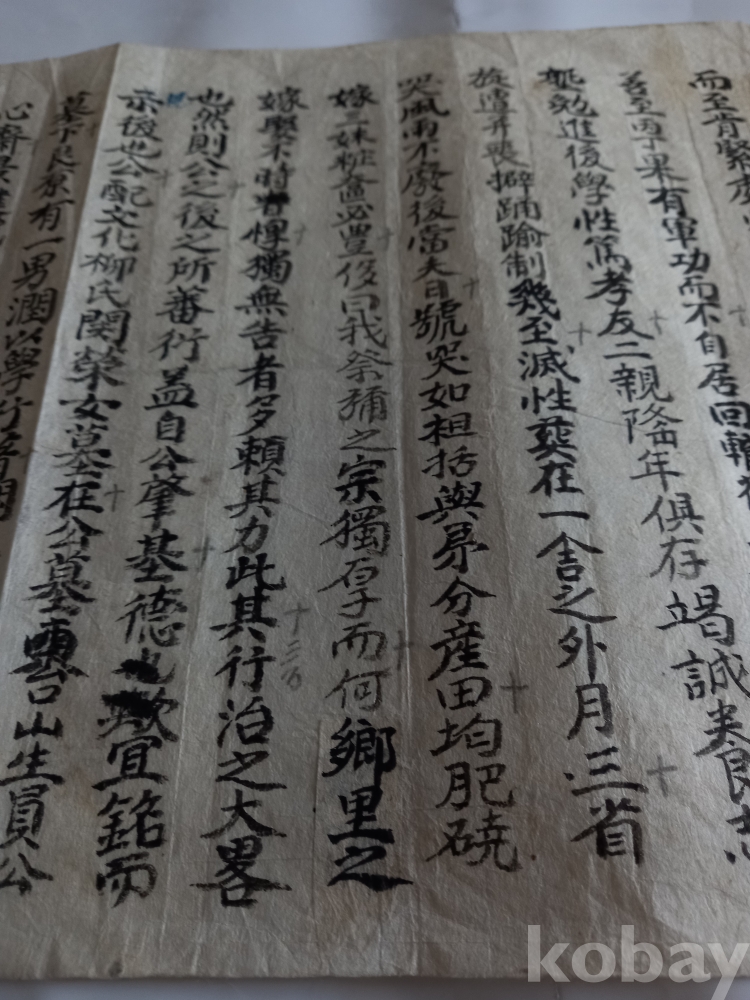 而至肯綮
善至丙丁果有軍功而不自居回
勉進後學性篤孝友二親隆年俱存竭誠
旋遭并喪擗踊踰制幾至滅性葬在一舍之外月三省
哭風雨不廢後當夫日號哭如袒括與弟分產田均肥磽
嫁三妹粧奩必豊後曰我祭禰之宗獨厚而何鄉里之
嫁娶不時惸獨無告者多賴其力此其行治之大畧
也然則公之後之所蕃衍盖自公肇基德也歟宜銘而
示後也公配文化柳氏閔榮女墓在公墓
墓下艮原有一男潤以學行 山生員公
心齋
kobay